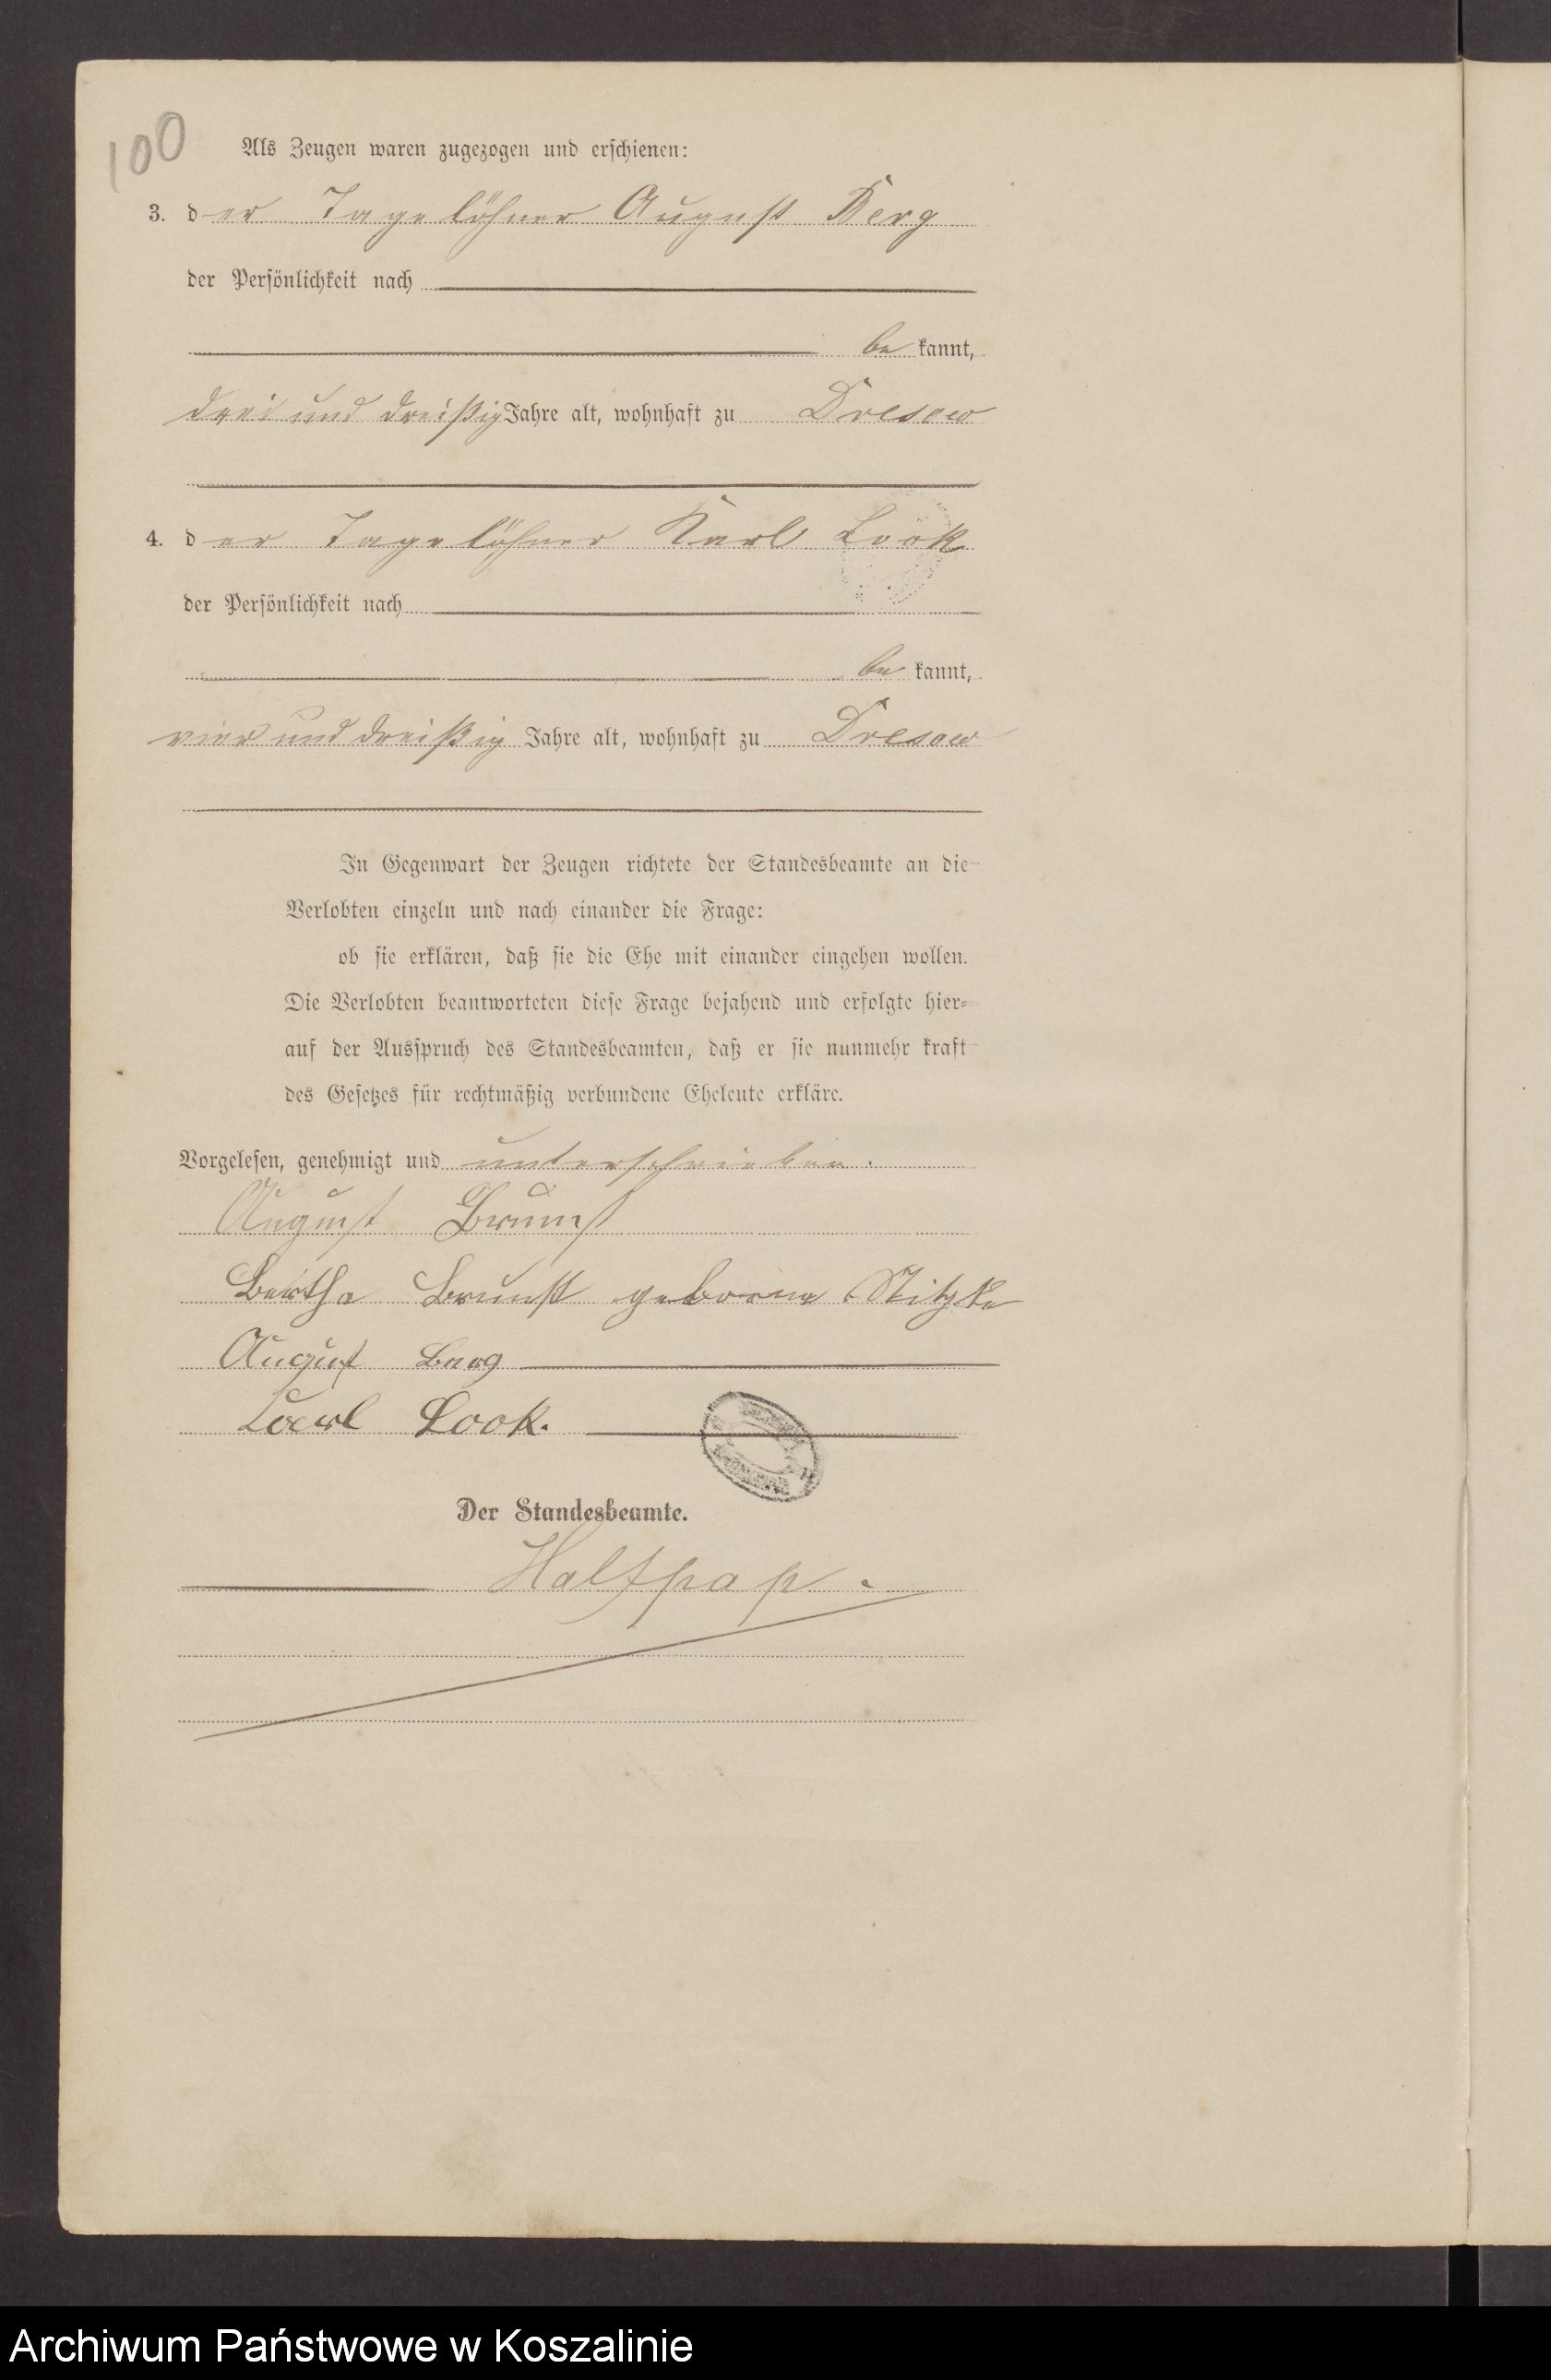 100
Als Zeugen waren zugezogen und erschienen:
3. der Tagelöhner August Berg
der Persönlichkeit nach
be kannt,
drei und dreißig Jahre alt, wohnhaft zu Dresow
4. der Tagelöhner Karl Look
der Persönlichkeit nach
be kannt,
vier und dreißig Jahre alt, wohnhaft zu Dresow
In Gegenwart der Zeugen richtete der Standesbeamte an die
Verlobten einzeln und nach einander die Frage:
ob sie erklären, daß sie die Ehe mit einander eingehen wollen.
Die Verlobten beantworteten diese Frage bejahend und erfolgte hier-
auf der Ausspruch des Standesbeamten, daß er sie nunmehr kraft
des Gesetzes für rechtmäßig verbundene Eheleute erkläre.
Vorgelesen, genehmigt und unterschrieben.
August Brunst
Bertha Brunst geborene Nitzke
August Berg
Karl Look.
Der Standesbeamte.
Halfpap.
Archiwum Państwowe w Koszalinie